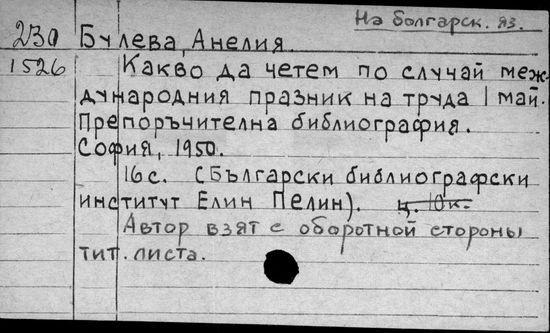 На болгарск. яз.
23а Булева, Анелия
1526 Какво да четем по случай меж-
дународния празник на труда 1 май.
Препоръчителна библиография.
София, 1950.
16 с. (Български библиографски
институт Елин Пелин). ц. 10 к.
Автор взят с оборотной стороны
тит. листа.